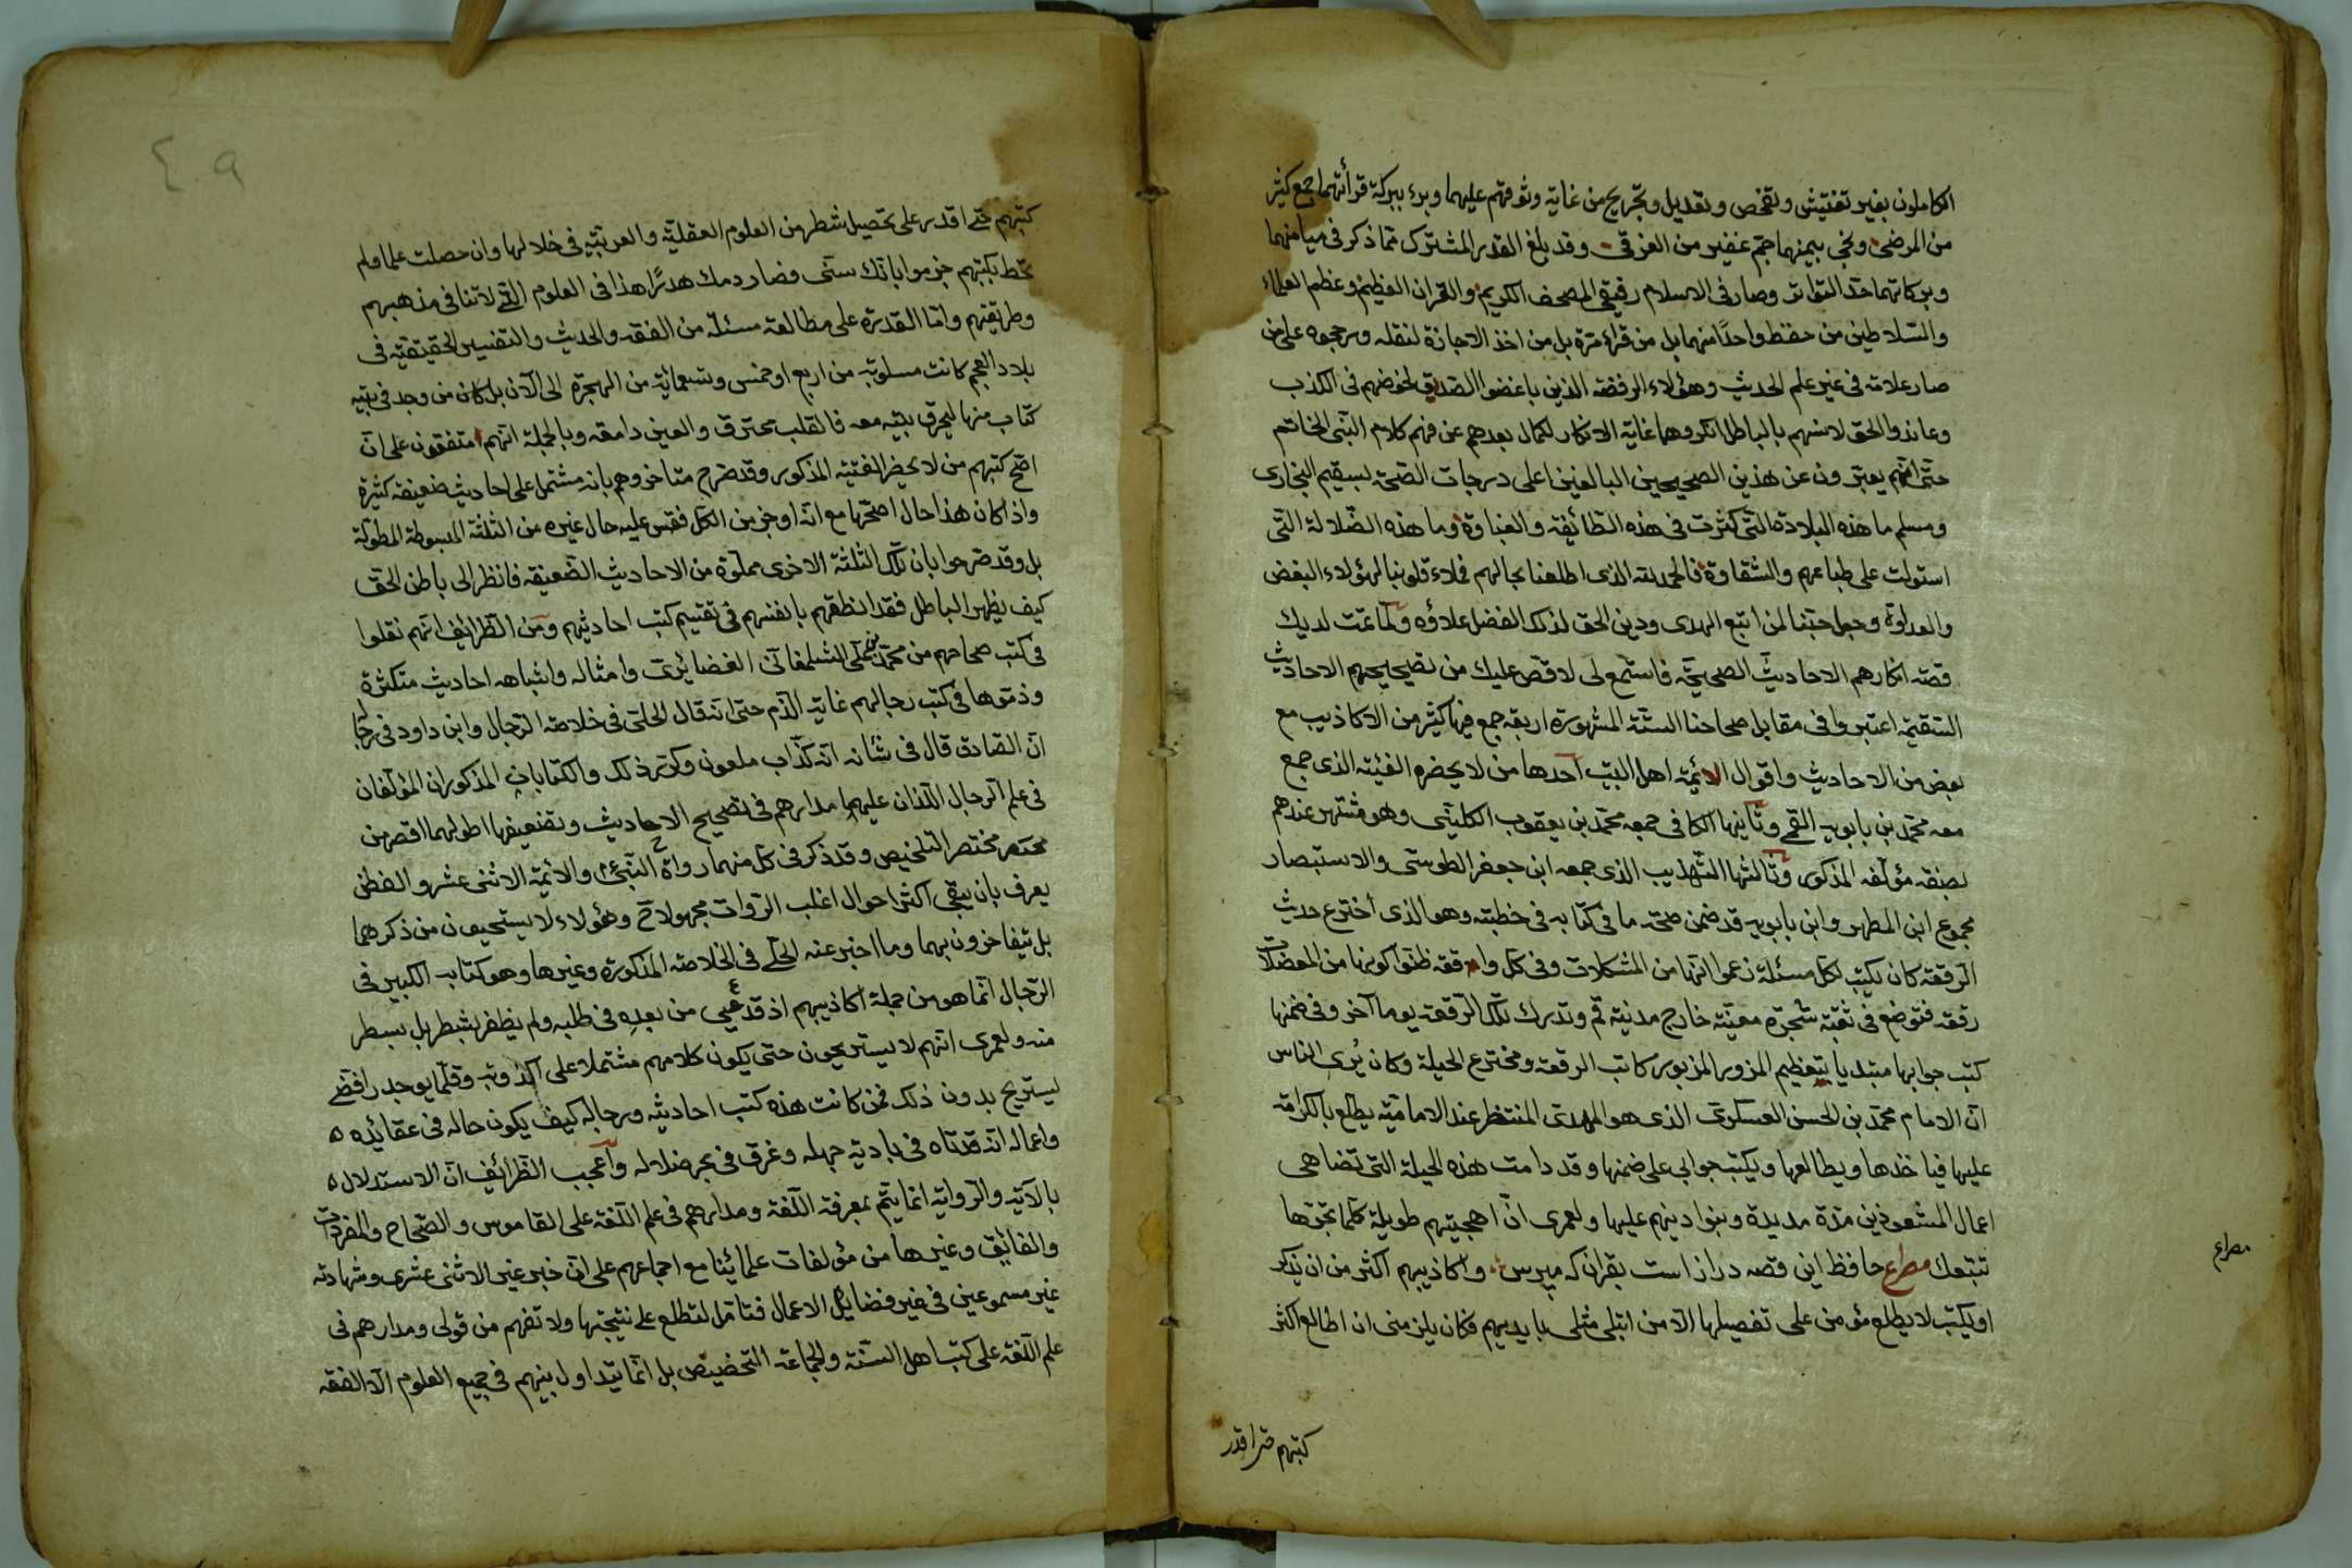 الكاملون بغير تفتيش وتفحص وتعديل وتجريح من غاية وثوقهم عليهما وبرء ببركة قرأتهما جمع كثير
من المرضى ونجى بيمنهما جم غفير من الغرقى وقد بلغ القدر المشترك مما ذكر في ميامنهما
وبركاتهما حد التواتر وصار في الاسلام رفيقي المصحف الكريم والقران العظيم وعظم العلماء
والسلاطين من حفظ واحدا منهما بل من قرأه مرة بل من اخذ الاجازة لنقله ورجحوه على من
صار علامة في غير علم الحديث وهؤلاء الرفضة الذين باغضوا الصديق لخوضهم في الكذب
وعاندوا الحق لانسهم بالباطل انكروهما غاية الانكار لكمال بعدهم عن فهم كلام النبي الخاتم
حتى انهم يعبرون عن هذين الصحيحين البالغين اعلى درجات الصحة بسقيم البخاري
ومسلم ما هذه البلادة التي كثرت في هذه الطائفة والغباوة وما هذه الضلالة التي
استولت على طباعهم والشقاوة فالحمد لله الذي اطلعنا بحالهم فملاء قلوبنا لهؤلاء البغض
والعداوة وجعل حبنا لمن اتبع الهدى ودين الحق لذلك الفضل علاوه ولما تمت لديك
قصة انكارهم الاحاديث الصحيحة فاستمع لي لاقص عليك من تصحيحهم الاحاديث
السقيمة اعتبروا في مقابل صحاحنا الستة المشهورة اربعة جمع فيها كثير من الاكاذيب مع
بعض من الاحاديث واقوال الائمة اهل البيت احدها من لا يحضره الفقيه الذي جمع
معه محمد بن بابويه القمي وثانيها الكافي جمعه محمد بن يعقوب الكليني وهو مشتهر عندهم
بصنفه مؤلفه المذكور وثالثها التهذيب الذي جمعه ابن جعفر الطوسي والاستبصار
مجموع ابن المطهر وابن بابويه قد ضمن صحة ما في كتابه في خطبته وهو الذي اخترع حديث
الرقعة كان يكتب لكل مسئلة زعموا انها من المشكلات وفي كل واقعة ظنوا كونها من المعضلات
رقعة فتوضع في ثقبة شجرة معينة خارج مدينة قم وتدرك تلك الرقعة يوما آخر وفي ضمنها
كتب جوابها مبتديا بتعظيم المزور المزبور كاتب الرقعة ومخترع الحيلة وكان يُري الناس
ان الامام محمد بن الحسن العسكري الذي هو المهدي المنتظر عند الامامية يطلع بالكرامة
عليها فياخذها ويطالعها ويكتب جوابي على ضمنها وقد دامت هذه الحيلة التي تضاهي
اعمال المشعوذين مدة مديدة وبنوا دينهم عليها ولعمري ان اهجيتهم طويلة كلما تحقها
تتبعك مصراع حافظ اين قصه دراز است بقران كه مپرس واكاذيبهم اكثر من ان يذكر
او يكتب لا يطلع مؤمن على تفصيلها الا من ابتلى مثلي بايديهم فكان يلزمني ان اطالع اكثر
مصراع
كتبهم حتى اقدر
٤٩
كتبهم حتى اقدر على تحصيل شطر من العلوم العقلية والعربية في خلالها وان حصلت علما ولم
تحط بكتبهم جزموا بانك سني فصار دمك هدرًا هذا في العلوم التي لا تنافي مذهبهم
وطريقتهم واما القدرة على مطالعة مسئلة من الفقه والحديث والتفسير الحقيقية في
بلاد العجم كانت مسلوبة من اربع او خمس وتسعمائة من الهجرة الى الآن بل كان من وجد في بيته
كتاب منها ليحرق بيته معه فالقلب محترق والعين دامعة وبالجملة انهم متفقون على ان
اصح كتبهم من لا يحضر الفقيه المذكور وقد صرح متاخروهم بانه مشتمل على احاديث ضعيفة كثيرة
واذا كان هذا حال اصحها مع انه اوجز من الكل فقس عليه حال غيره من الثلثة المبسوطة المطولة
بل وقد صرحوا بان تلك الثلثة الاخرى مملوة من الاحاديث الضعيفة فانظر الى باطن الحق
كيف يظهر الباطل فقد انطقهم بانفسهم في تقسيم كتب احاديثهم ومن الظرائف انهم نقلوا
في كتب صحاحهم من محمد بن علي الشلمغاني الغضائري وامثاله واشباهه احاديث متكثرة
وذموها في كتب رجالهم غاية الذم حتى انه قال الحلي في خلاصة الرجال وابن داود في رجا
ان الصادق قال في شأنه انه كذاب ملعون وكرر ذلك والكتابان المذكوران المؤلفان
في علم الرجال اللذان عليهما مدارهم في تصحيح الاحاديث وتضعيفها اطولهما اقصر من
مختصر مختصر التلخيص وقد ذكر في كل منهما رواة النبي والائمة الاثنى عشر والفطن
يعرف بان يبقى اكثر احوال اغلب الروات مجهولا ح وهؤلاء لا يستحيون من ذكرهما
بل يتفاخرون بهما وما اخبر عنه الحلي في الخلاصة المذكورة وغيرها وهو كتابه الكبير في
الرجال انما هو من جملة اكاذيبهم اذ قد عيي من بعده في طلبه ولم يظفر بشطر بل بسطر
منه ولعمري انهم لا يستريحون حتى يكون كلامهم مشتملا على اكذوبة وقلما يوجد رافضي
يستريح بدون ذلك فمن كانت هذه كتب احاديثه ورجاله كيف يكون حاله في عقائده
واعماله انه قد تاه في بادية جهله وغرق في بحر ضلاله واعجب الظرائف ان الاستدلال
بالآية والرواية انما يتم بمعرفة اللغة ومدارهم في علم اللغة على القاموس والصحاح والمفردات
والفايق وغيرها من مؤلفات علمائنا مع اجماعهم على ان خبر غير الاثنى عشري وشهادته
غير مسموعين في غير فضايل الاعمال فتامل لتطلع على نتيجتها ولا تفهم من قولي ومدارهم في
علم اللغة على كتب اهل السنة والجماعة التخصيص بل انما يتداول بينهم في جميع العلوم الا الفقه